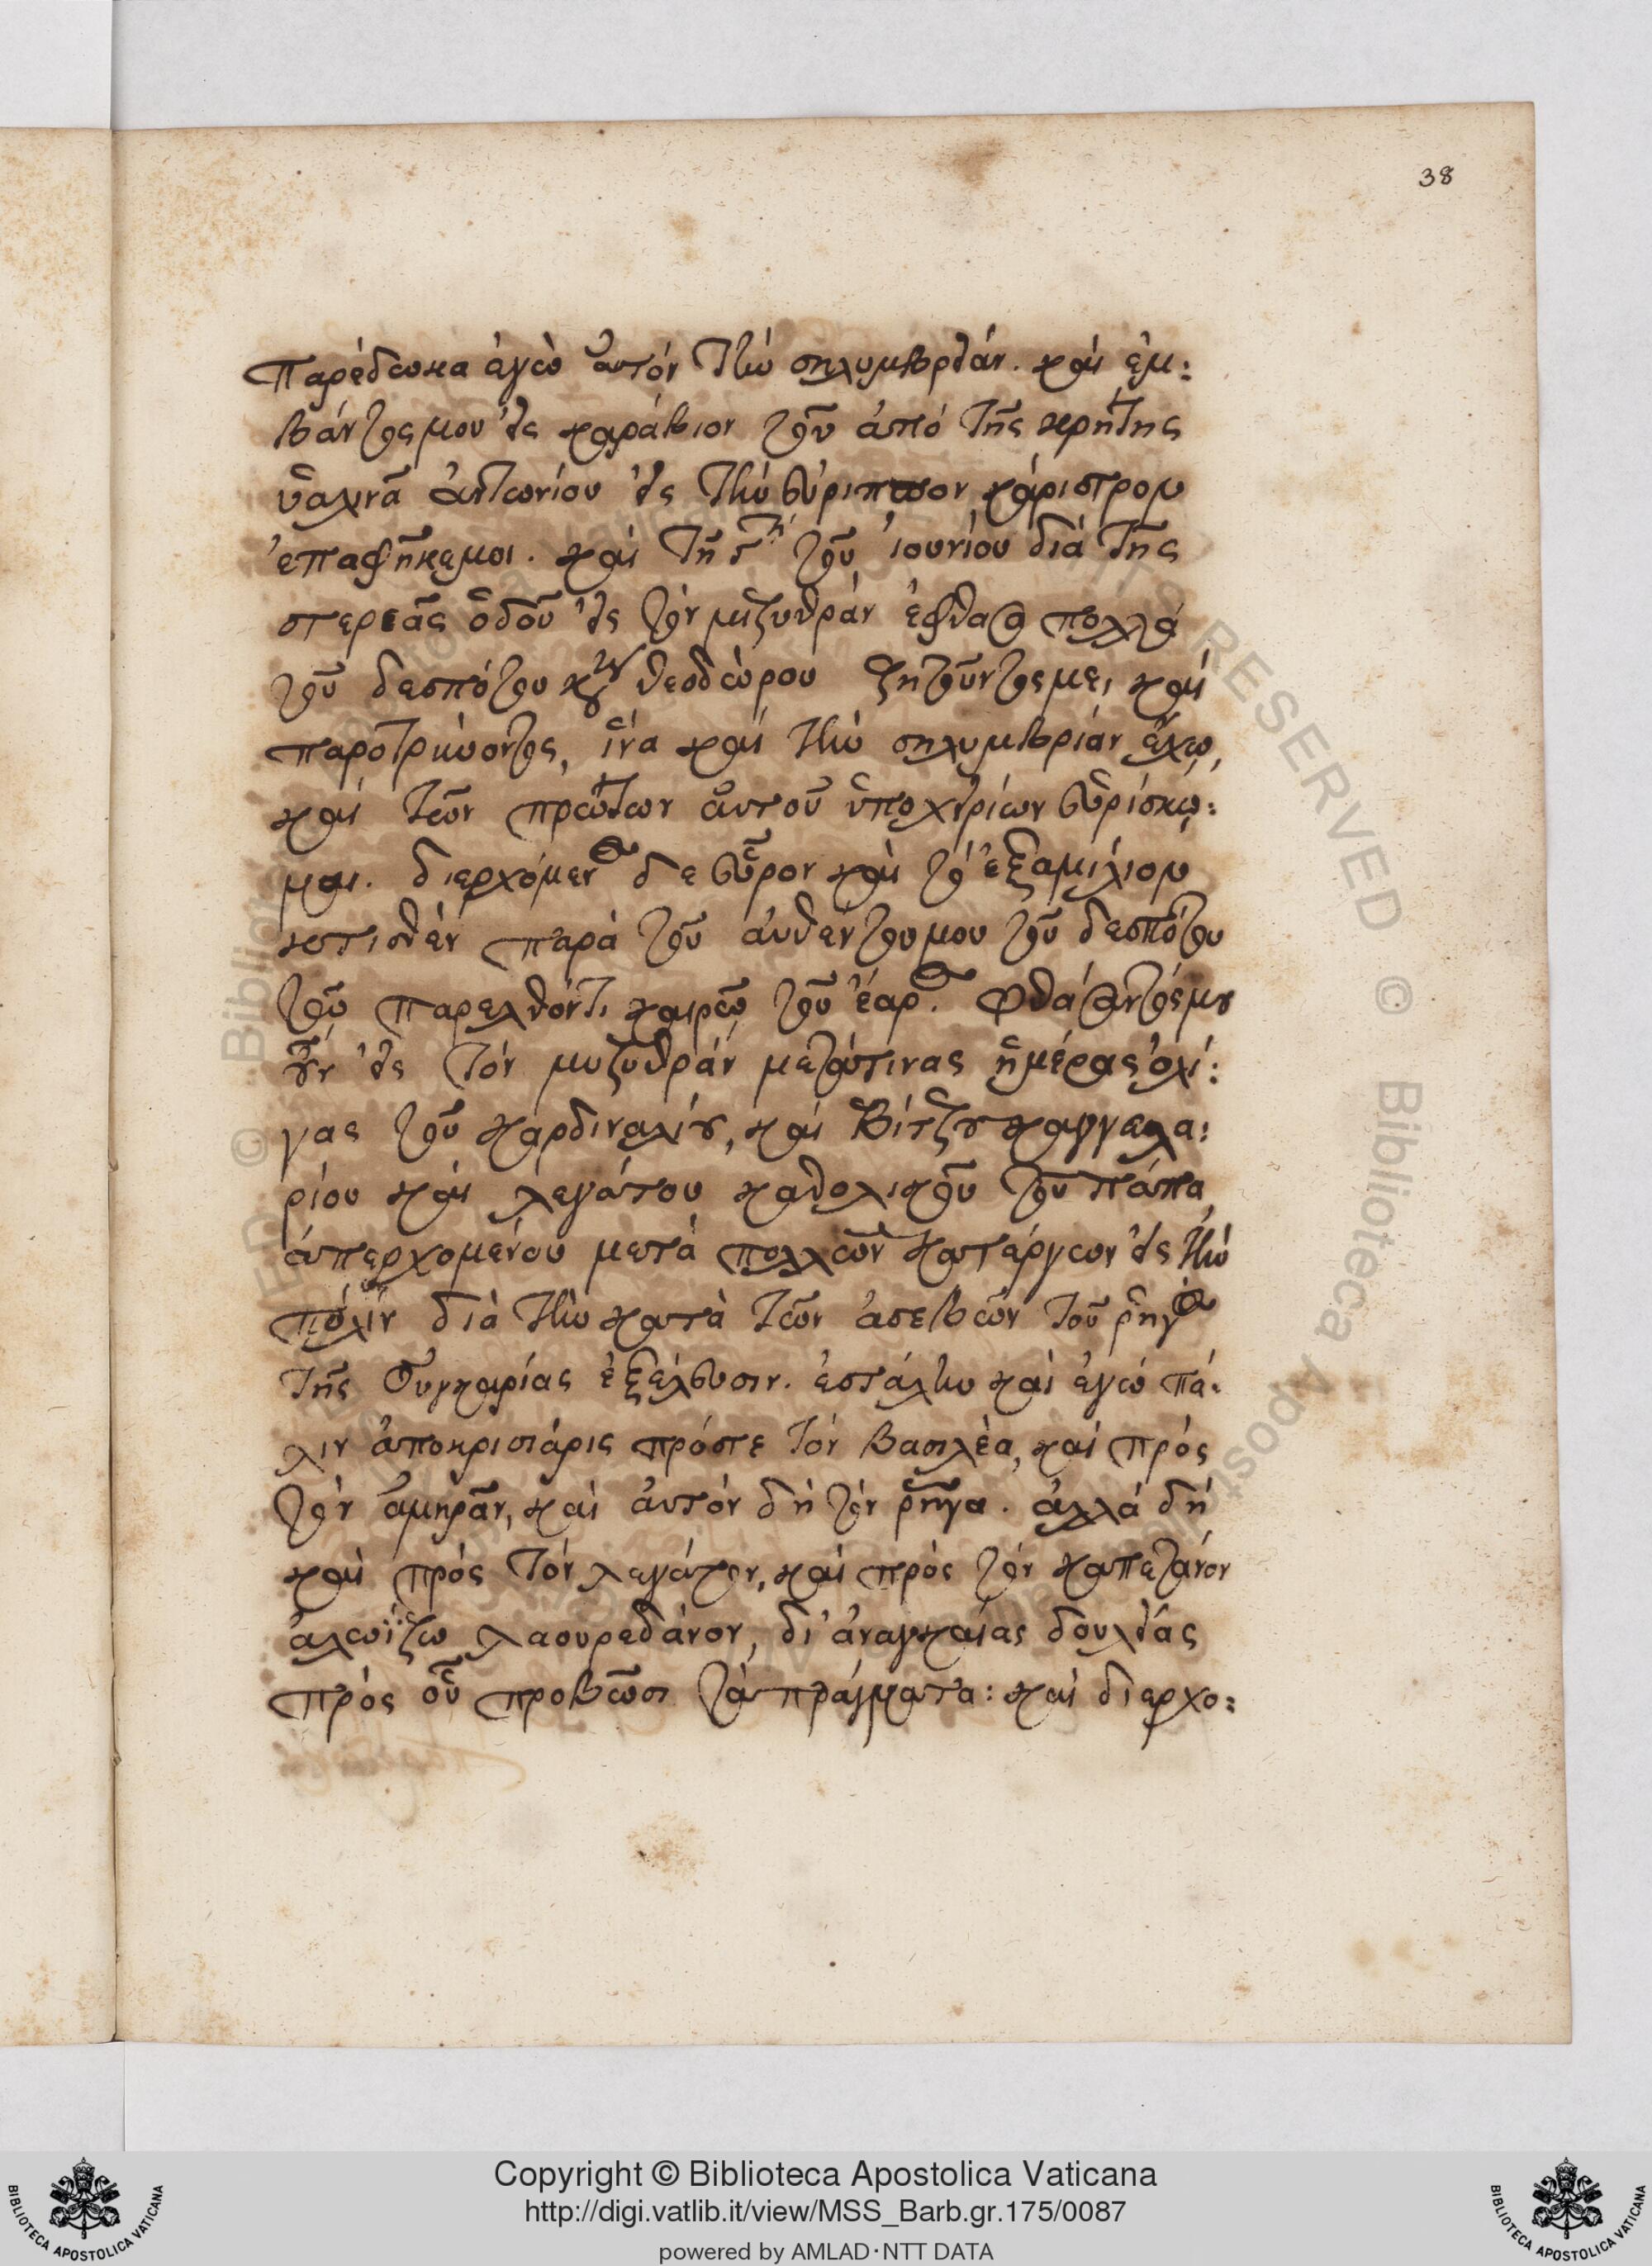 38
παρέδωκα ἐγὼ αὐτόν τὴν σηλυμβρείαν. καὶ ἐμ:
βάντος μου εἰς καράβιον τοῦ ἀπό τῆς κρήτης
ὑαλινᾶ ἀντωνίου εἰς τὴν εὔριπον κάριστρον
ἐπαφῆκεμοι. καὶ τῆ τῇ τοῦ ἰουνίου διά τῆς
στερεᾶς ὁδοῦ εἰς τὸν μηζυθράν ἔφθασα πολλά
τοῦ δεσπότου κυροῦ θεοδώρου ζητοῦντοςμε, καὶ
παροτρύνοντος, ἵνα καὶ τὴν σηλυμβρίαν ἔχω,
καὶ τῶν πρώτων αὐτοῦ ὑποχειρίων εὑρίσκω:
μαι. διερχόμενος δε εὗρον καὶ τὸ ἐξαμίλιον
κτισθὲν παρὰ τοῦ αὐθέντου μου τοῦ δεσπότου
τοῦ παρελθόντι καιρῶ τοῦ ἔαρος. φθάσαντόςμου
οὖν εἰς τόν μυζυθράν μετάτινας ἡμέρας ὀλί:
γας τοῦ καρδιναλίου, καὶ βίτζου καγγελα:
ρίου καὶ λεγάτου καθολικοῦ τοῦ πάπα
ἀπερχομένου μετὰ πολλῶν κατέργων εἰς τὴν
πόλιν διὰ τὴν κατὰ τῶν ἀσεβῶν τοῦ ῥηγὸς
τῆς οὐγκαρίας ἐξέλευσιν. ἐστάλην καὶ ἐγώ πά:
λιν ἀποκρισιάρις πρόστε τόν βασιλέα, καὶ πρὸς
τὸν ἀμηρᾶν, καὶ αὐτόν δὴ τὸν ῥῆγα. ἀλλά δή
καὶ πρὸς τόν λεγάτον, καὶ πρὸς τὸν καπετάνον
ἀλωΐζω λαουρεδάνον, δι' ἀναγκαίας δουλείας
πρὸς οὗ προβῶσι τὰ πράγματα: καὶ διερχο:
Copyright © Biblioteca Apostolica Vaticana
http://digi.vatlib.it/view/MSS_Barb.gr.175/0087
powered by AMLAD·NTT DATA
BIBLIOTECA APOSTOLICA VATICANA
BIBLIOTECA APOSTOLICA VATICANA